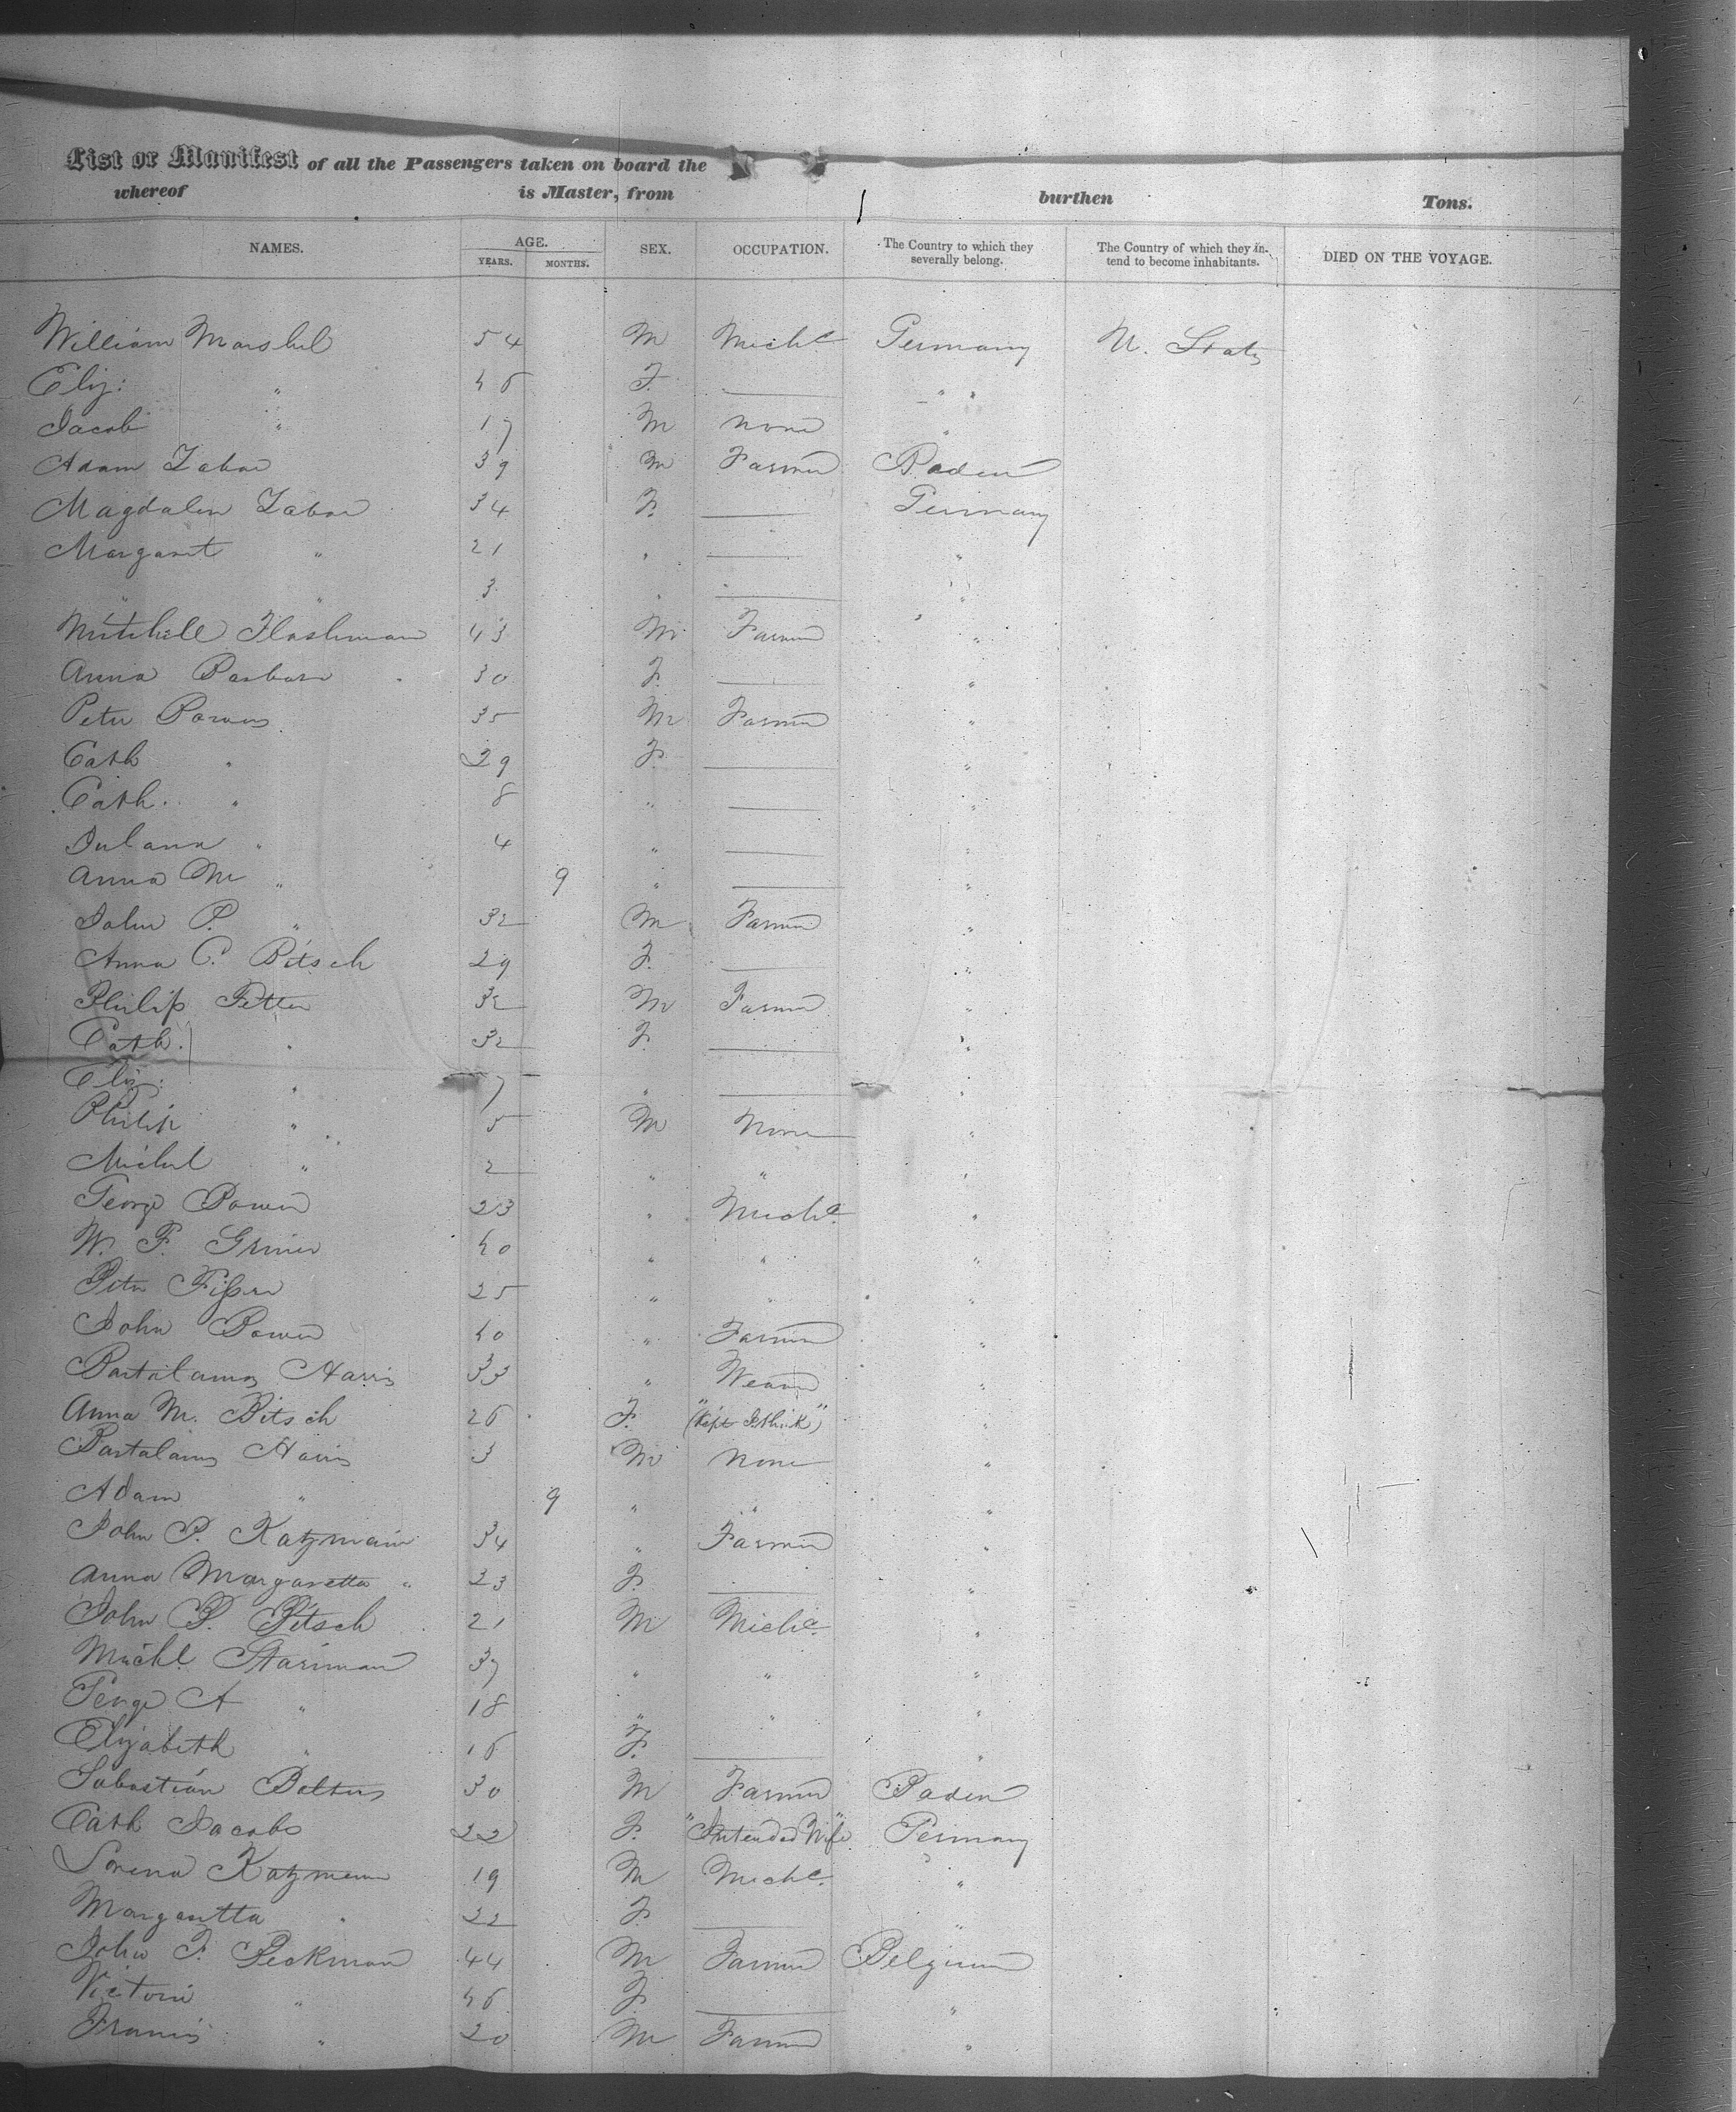 List or Manifest of all the Passengers taken on board the
whereof is Master, from burthen Tons.
NAMES. AGE. YEARS. MONTHS. SEX. OCCUPATION. The Country to which they severally belong. The Country of which they intend to become inhabitants. DIED ON THE VOYAGE.
William Marshel 54 M Mech.c Germany U. States
Eliz: " 46 F. — " "
Jacob " 17 M none "
Adam Labar 39 M Farmer Baden
Magdalen Labar 34 F. — Germany
Margaret " 21 " — "
" " 3 " — "
Mitchell Flashman 43 M Farmer "
Anna Barbara 30 F. — "
Peter Bowers 35 M Farmer "
Cath " 29 F. — "
Cath. " 8 " — "
Julana " 4 " — "
Anna M " 9 " — "
John P. " 32 M Farmer "
Anna C. Bitsch 29 F. — "
Philip Fetter 32 M Farmer "
Cath. " 32 F. — "
Eliz: " 7 " — "
Philip " 5 M None "
Michel " 2 " " "
George Bower 23 " Mech.c "
W. F. 40 " " "
Peter 25 " " "
John Bower 40 " Farmer "
Bartalamus Harris 33 " Weaver "
Anna M. Bitsch 26 F. "(Kept I think)" "
Bartalamus Harris 3 M None "
Adam " 9 " " "
John P. Katzmain 34 " Farmer "
Anna Margaretta " 23 F. — "
John P. Bitsch 21 M Mech.c "
Michl. Stariman 37 " " "
George A " 18 " " "
Elizabeth " 16 F. — "
Sabastian Balters 30 M Farmer Baden
Cath Jacobs 22 F. "Intended Wife" Germany
Lorena Katzmann 19 M Mech.c "
Margaretta " 22 F. — "
John F. Beckman 44 M Farmer Belgium
Victori " 46 F. — "
Francis " 20 M Farmer "